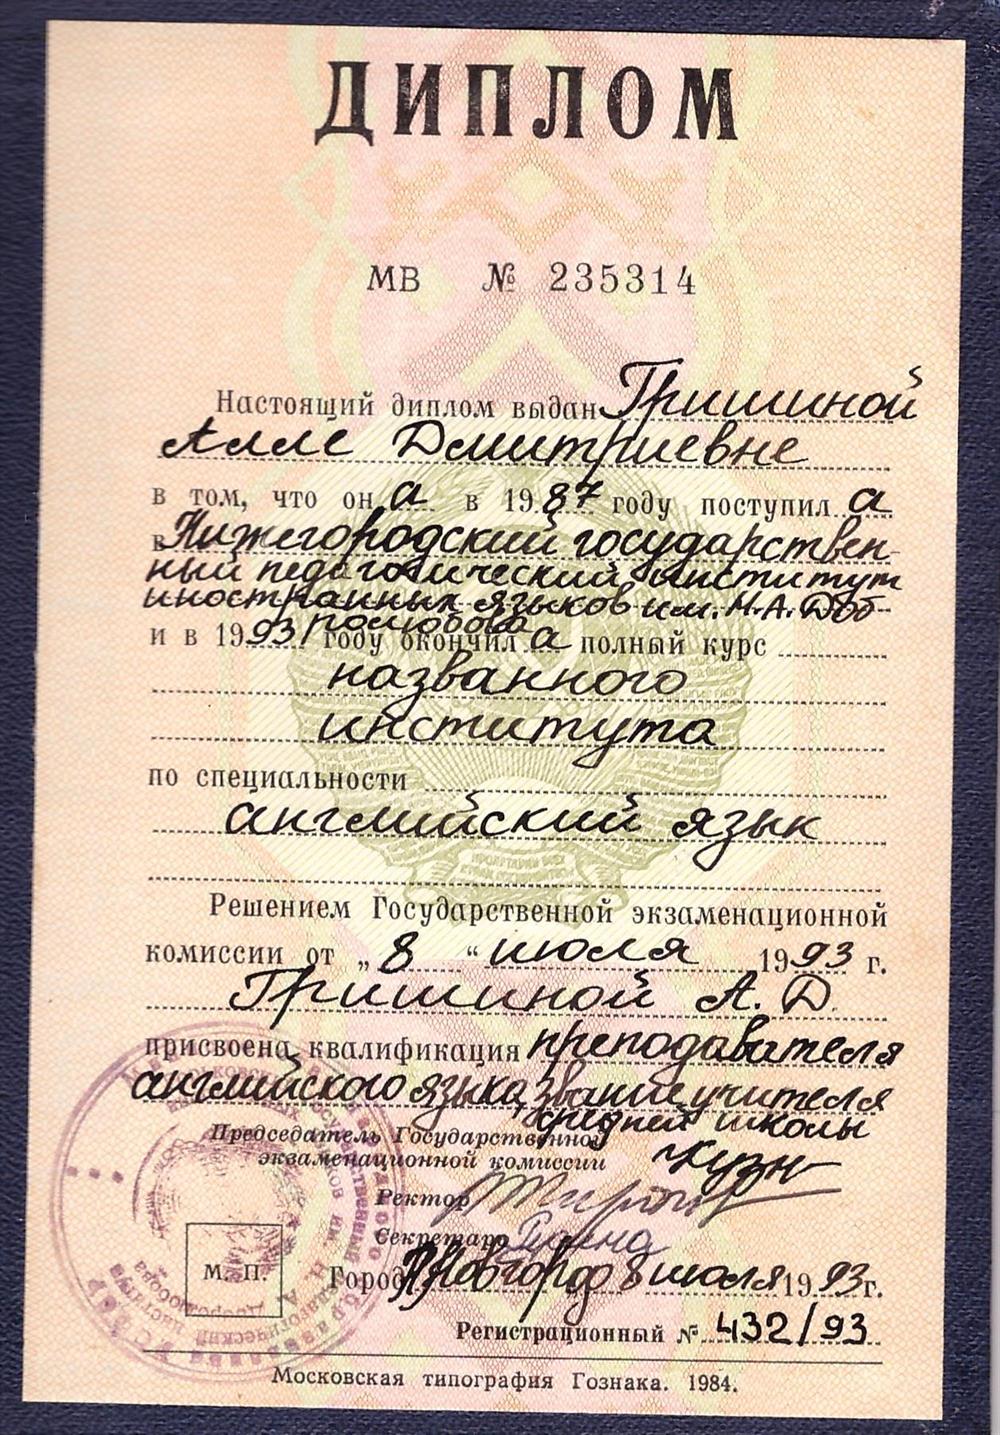 ДИПЛОМ
МВ № 235314
Настоящий диплом выдан Гришиной
Алле Дмитриевне
в том, что он а в 1987 году поступил а
в Нижегородский государствен-
ный педагогический институт
иностранных языков им. Н.А. Доб-
ролюбова
и в 1993 году окончил а полный курс
названного
института
по специальности
английский язык
Решением Государственной экзаменационной
комиссии от „8" июля 1993 г.
Гришиной А. Д.
присвоена квалификация преподавателя
английского языка, звание учителя
средней школы
Председатель Государственной
экзаменационной комиссии
Ректор
Секретарь
М. П.
Город Н.Новгород 8 июля 1993 г.
Регистрационный № 432/93
Московская типография Гознака. 1984.